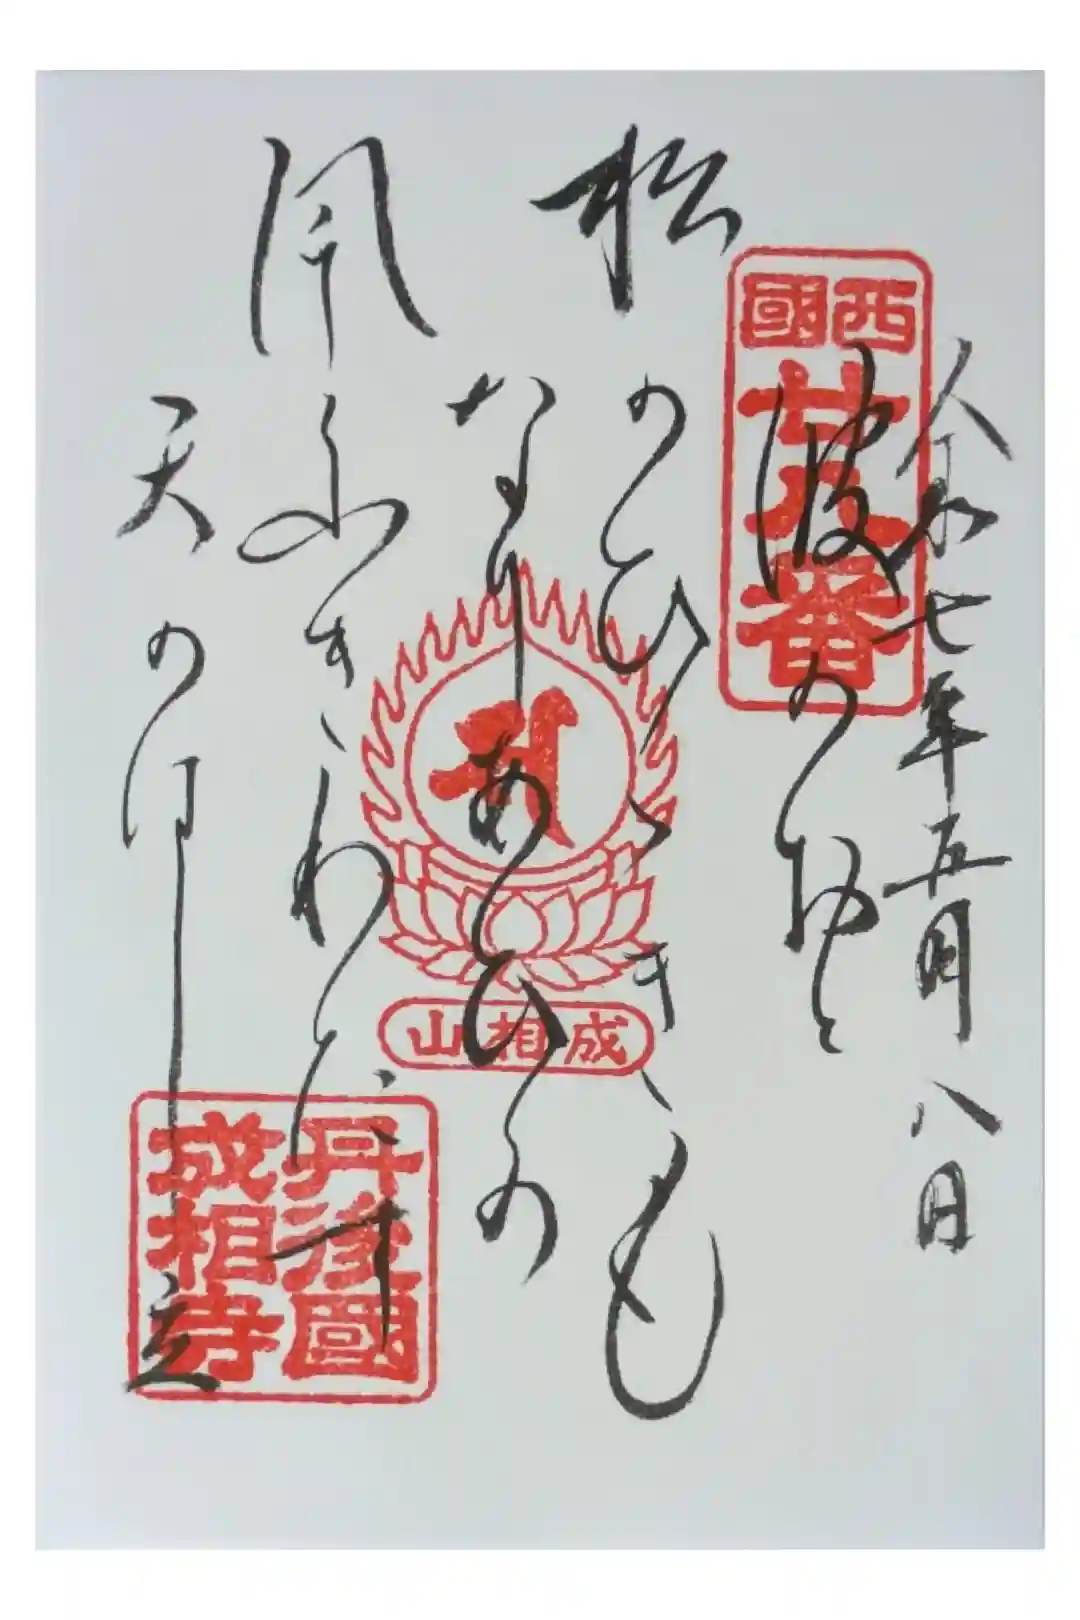 令和七年五月八日
西國
廿八番
波のおと
松のひゞきも
なりあひの
成相山
風ふきわたす
天のはし立
丹後國
成相寺